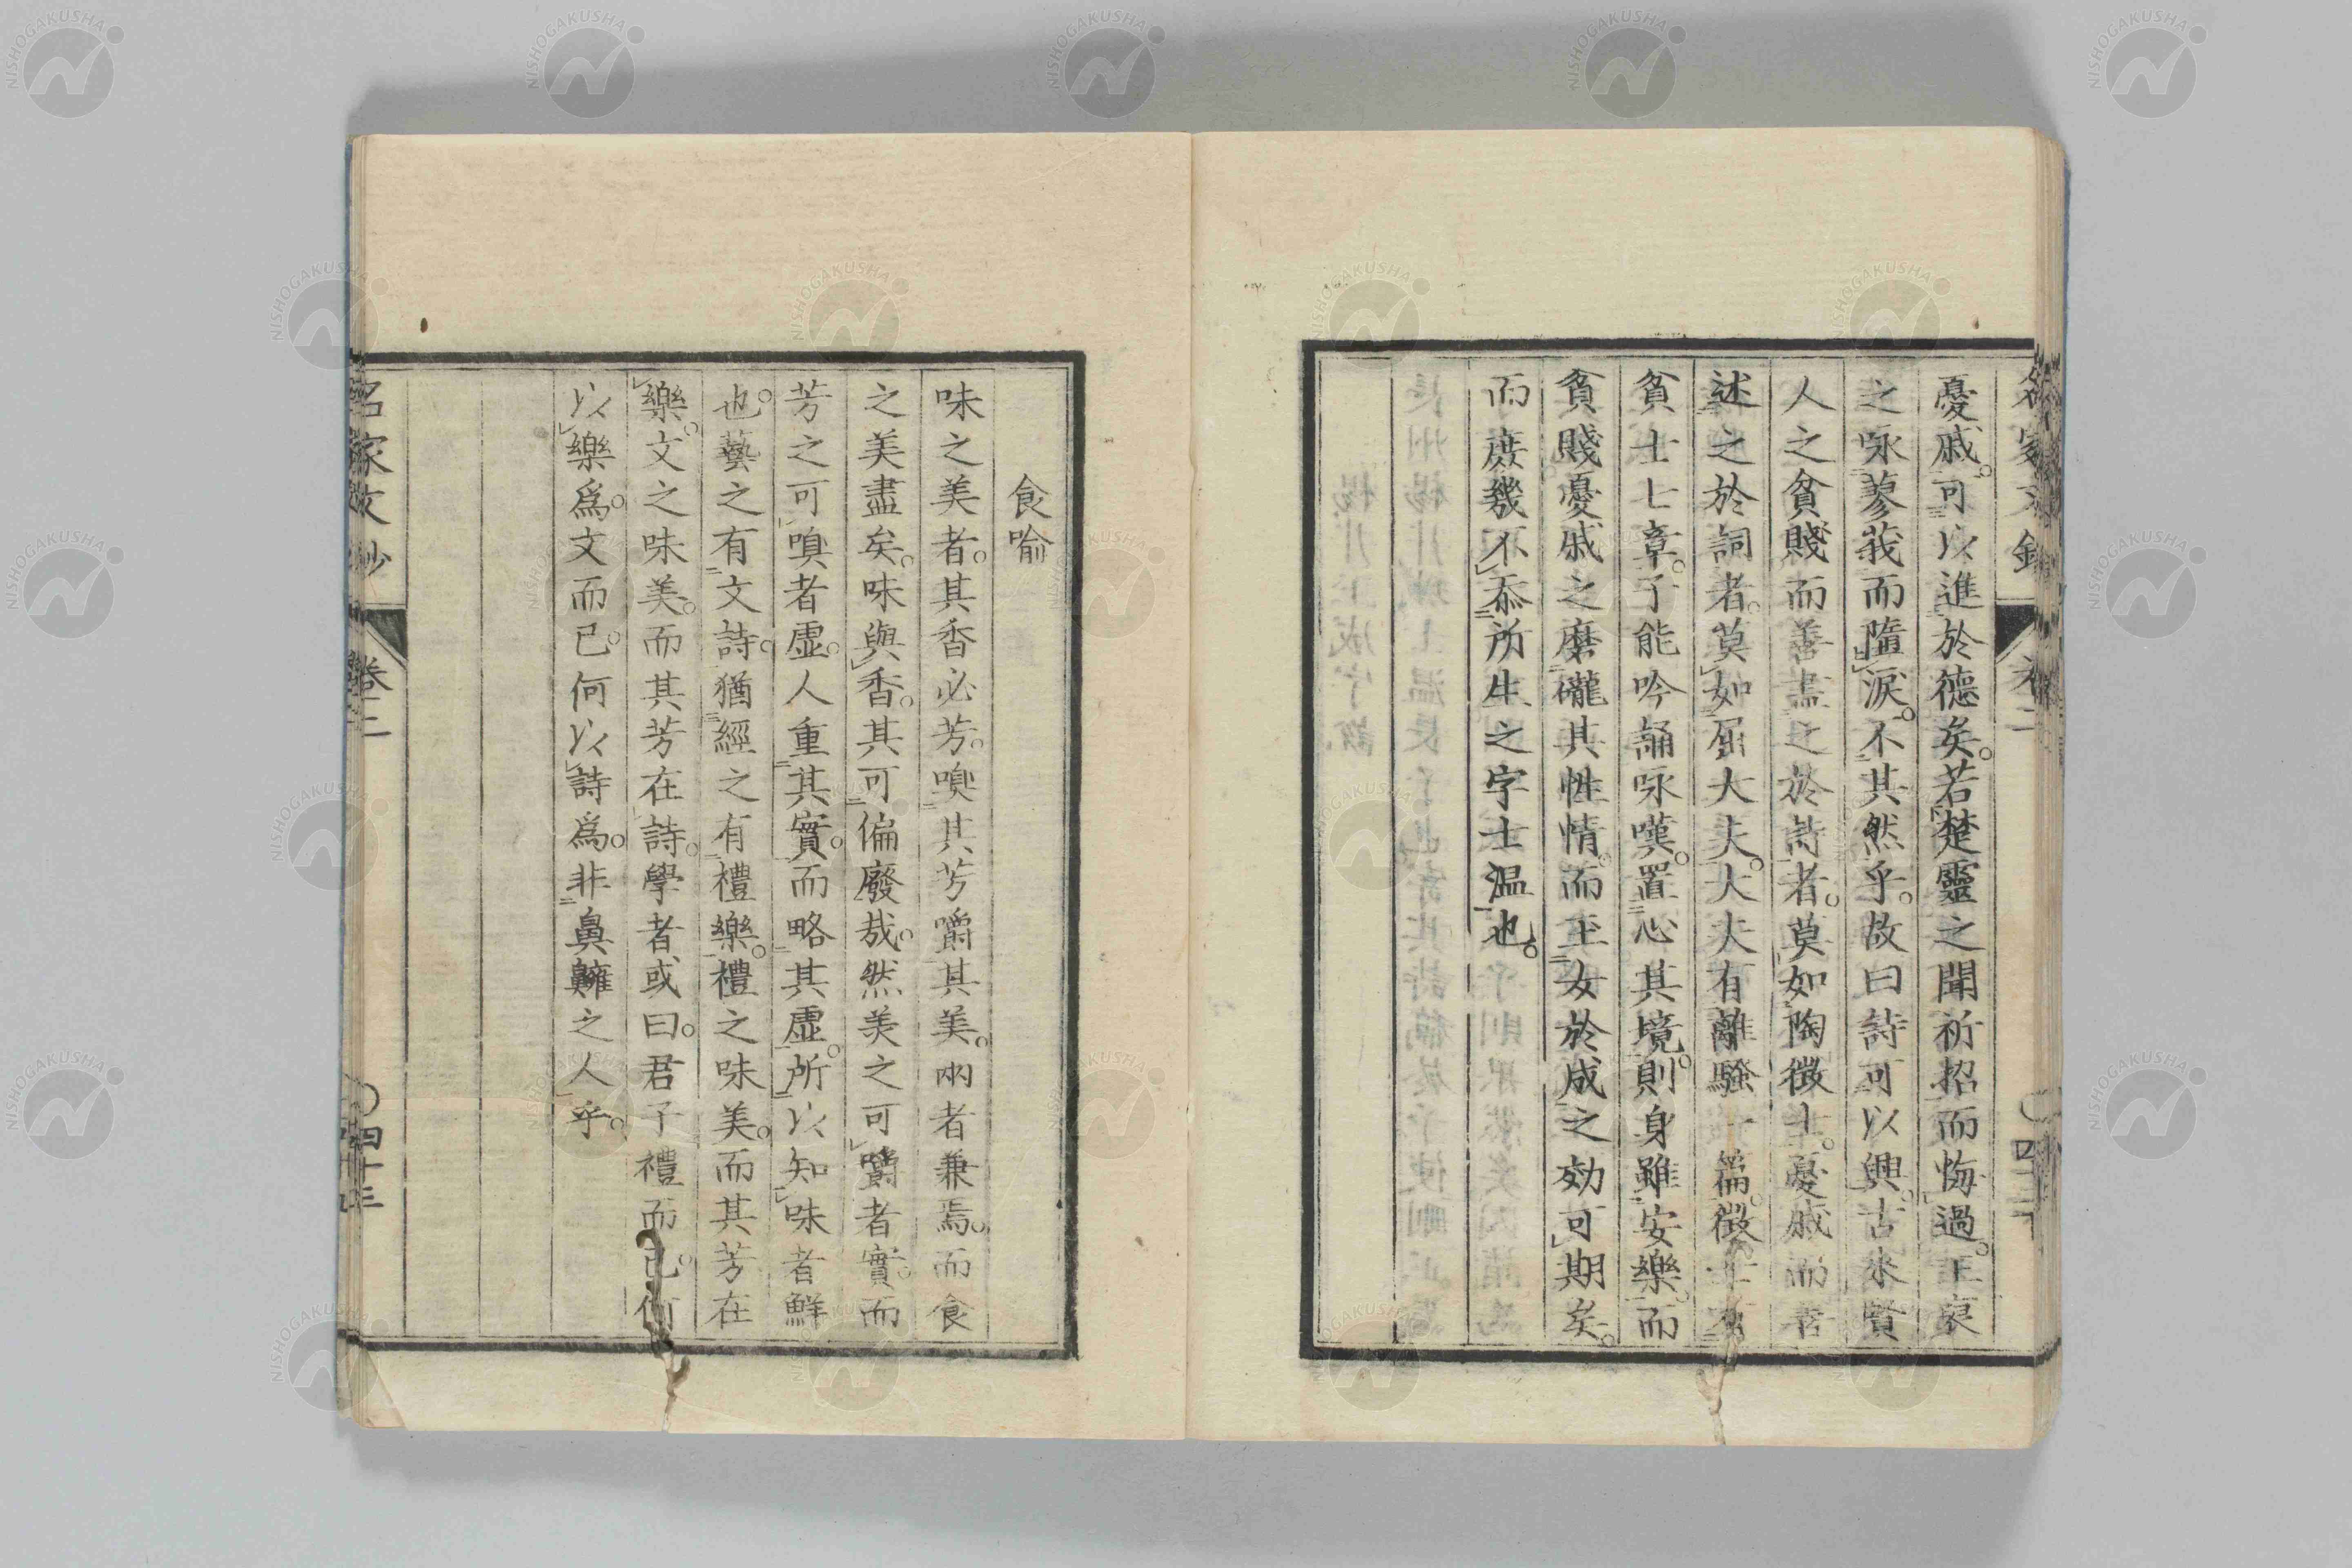 憂戚。可以進於德矣。若楚靈之聞祈招而悔過。王裒
之咏蓼莪而墮淚。不其然乎。故曰詩可以興。古來賢
人之貧賤而善盡之於詩者。莫如陶徵士。憂戚而善
述之於詞者。莫如屈大夫。大夫有離騷一篇。徵士有
貧士七章。子能吟誦咏嘆。置心其境。則身雖安樂。而
貧賤憂戚之磨礲其性情。而玉女於成之効可期矣。
而庶幾不忝所生之字士温也。
食喻
味之美者。其香必芳。嗅其芳嚼其美。兩者兼焉。而食
之美盡矣。味與香。其可偏廢哉。然美之可嚼者實。而
芳之可嗅者虛。人重其實。而略其虛。所以知味者鮮
也。藝之有文詩。猶經之有禮樂。禮之味美。而其芳在
樂。文之味美。而其芳在詩。學者或曰。君子禮而已。何
以樂爲。文而已。何以詩爲。非鼻齆之人乎。
名家文抄
卷二
四十三
NISHOGAKUSHA